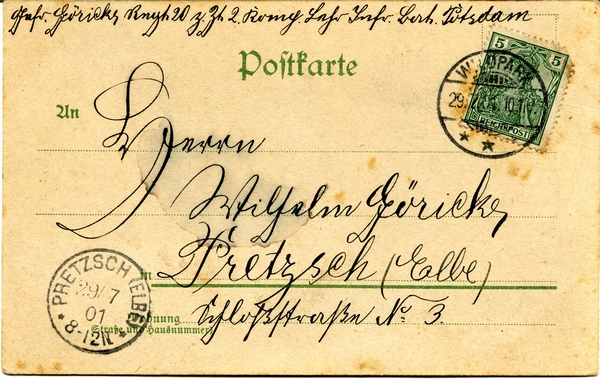 Gefr. Göricke Regt. 20 z. Zt. 2. Komp. Lehr Infr. Batl. Potsdam
Postkarte
5 5
REICHSPOST
WILDPARK
29.7.01. 10
An
Herrn
Wilhelm Göricke
in Pretzsch (Elbe)
Schloßstraße No. 3.
Wohnung
Straße und Hausnummer)
PRETZSCH (ELBE)
29/7
01
8-12N